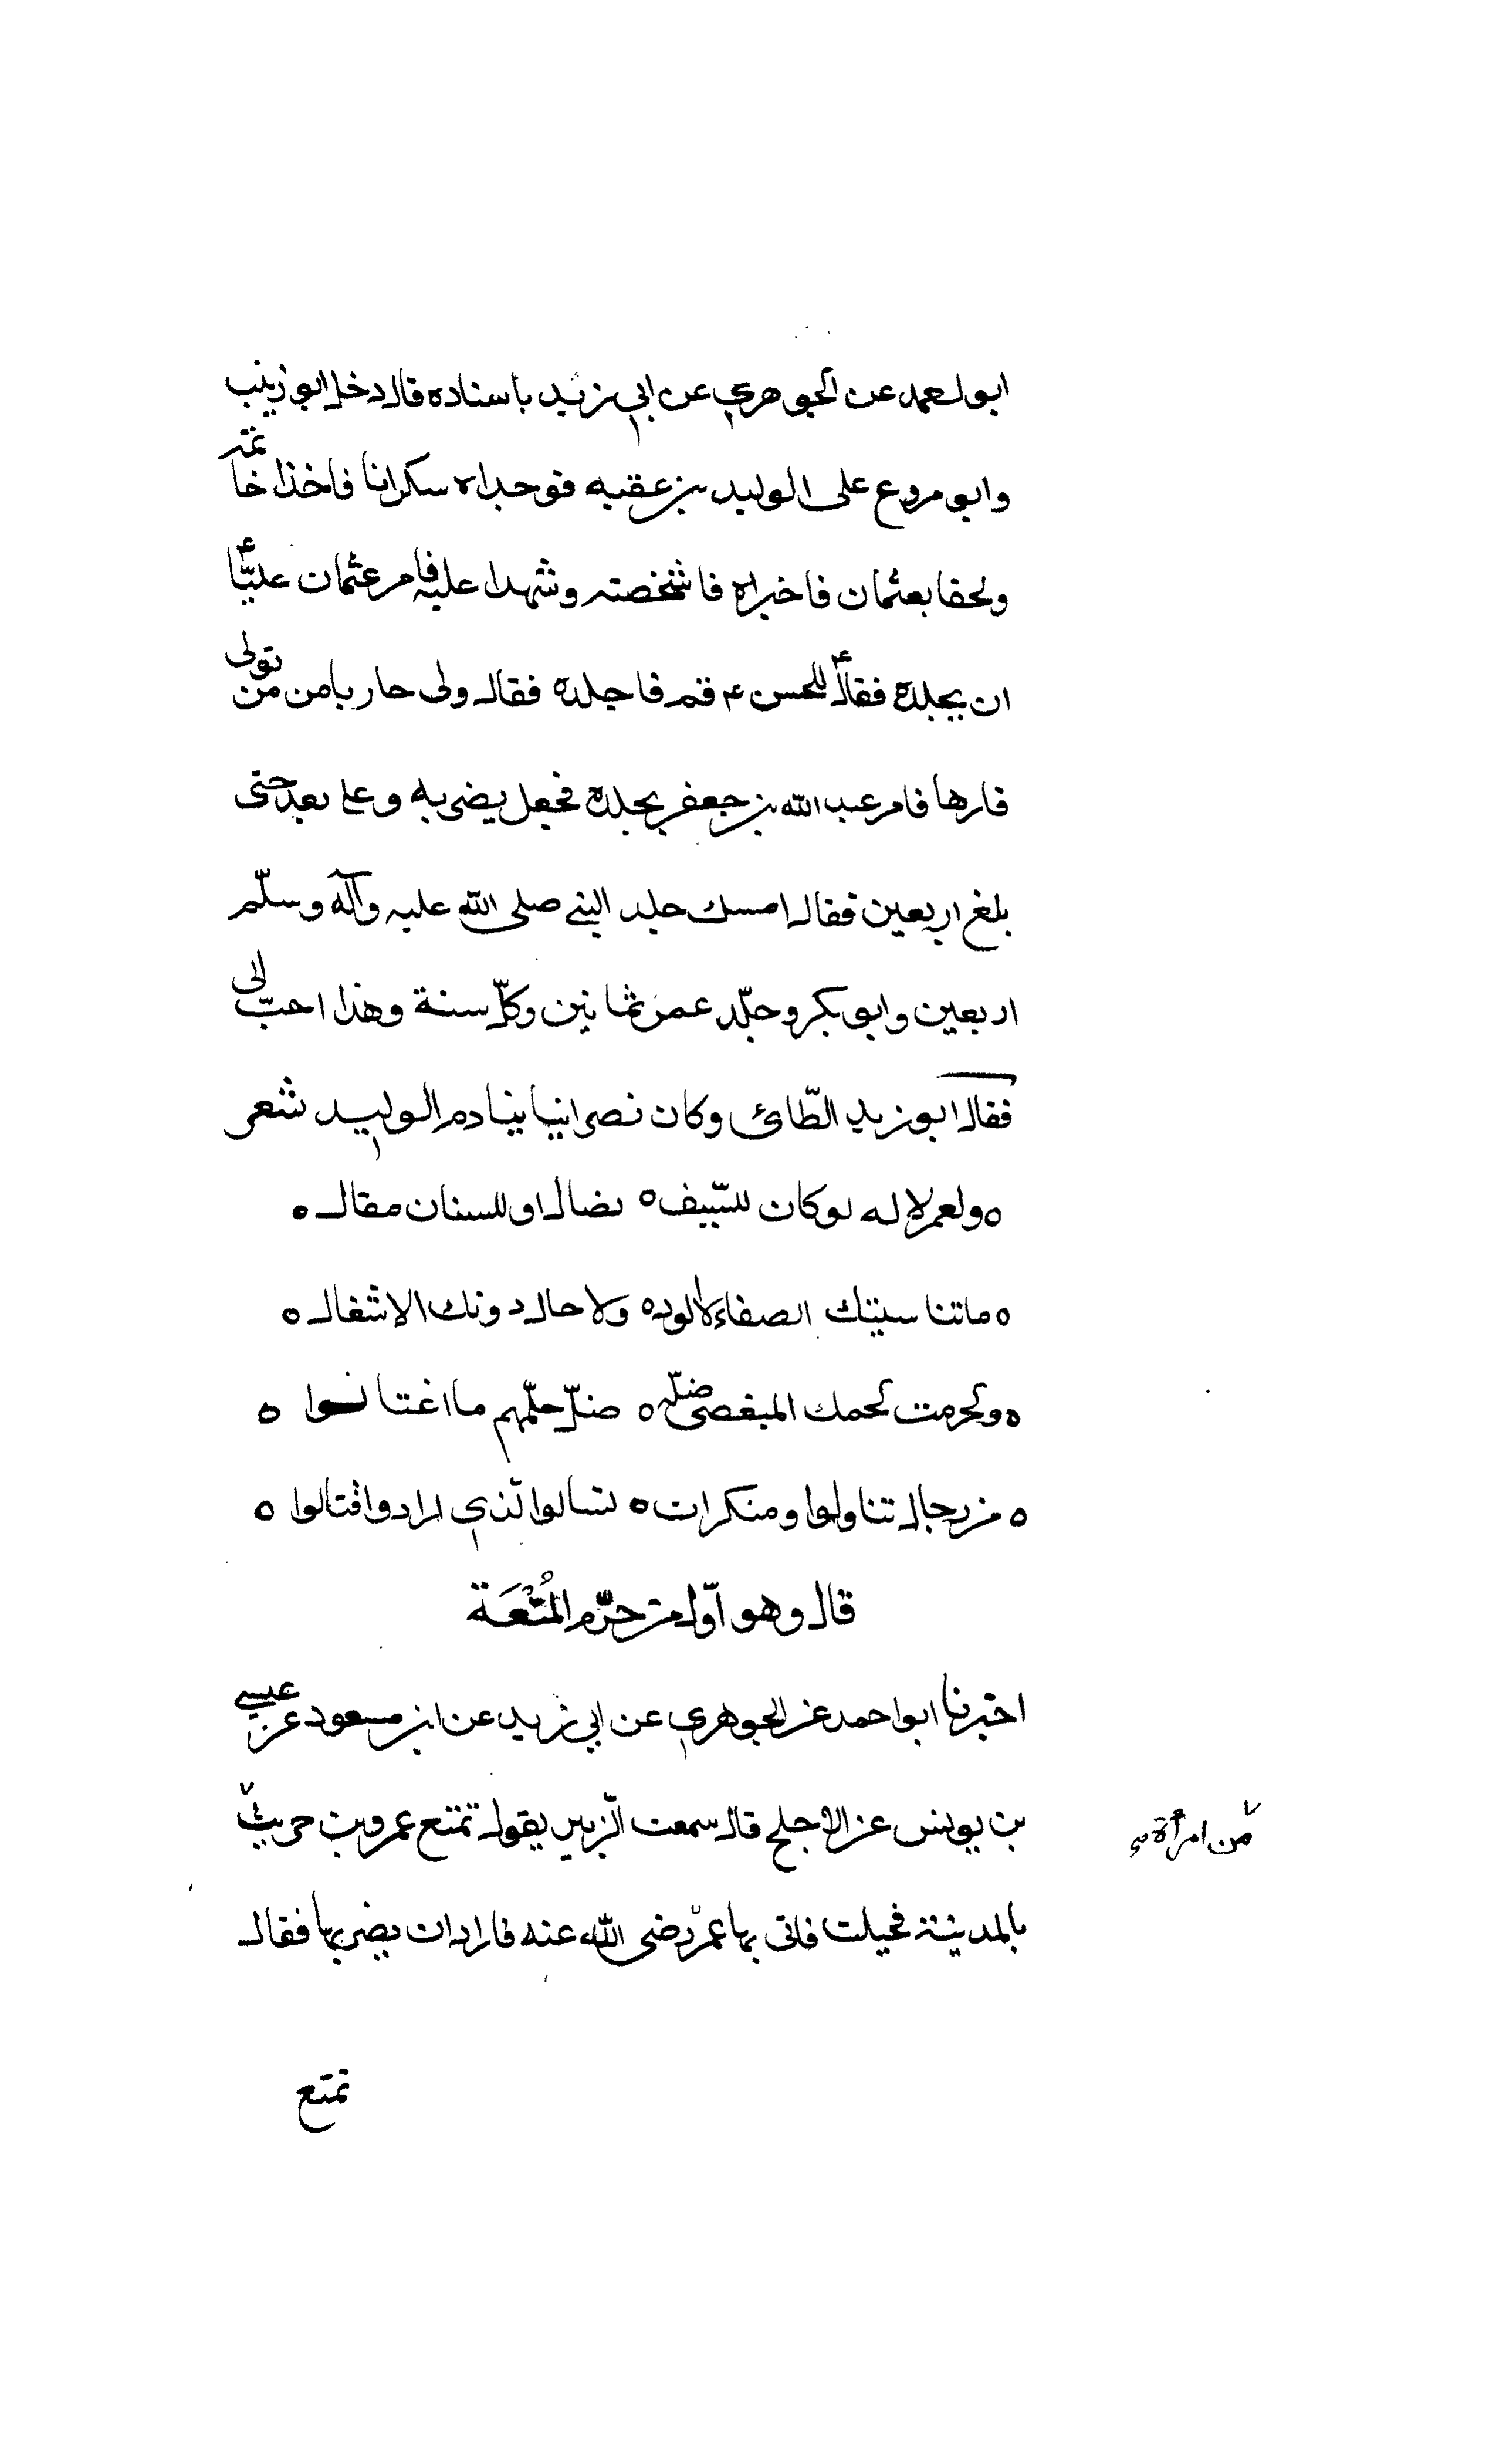 ابو احمد عن الجوهري عن ابي زيد باسناده قال دخل ابو زينب
وابو مروع على الوليد بن عقبه فوجداه سكرانا فاخذا خاتمه
ولحقا بعثمان فاخبراه فاشخصته وشهدا عليه فامر عثمان عليّا
ان يجلده فقال للحسن ع قم فاجلده فقال ولى حارها من من تولى
قارها فامر عبد الله بن جعفر بجلده فجعل يضربه وعلى يعد حتى
بلغ اربعين فقال امسك جلد النبي صلى الله عليه وآله وسلّم
اربعين وابو بكر وجلّد عمر ثمانين وكلّ سنة وهذا احبّ الى
فقال ابو زبيد الطّائى وكان نصرانيا ينادم الوليد شعر
ه ولعمر لاله لو كان للسّيف ه نضال او للسنان مقال ه
ه ما تناسيتك الصفاء لا الوده ولا حال دونك الاشغال ه
ه ولحرمت لحمك المبغصى ضلّه ه ضلّ حلّمهم ما اغتا لسوا ه
ه من رجال تناولوا ومنكرات ه لينالوا لّذي ارادوا فتالوا ه
قال وهو اوّل من حرّم المُتْعَة
اخبرنا ابو احمد عن الجوهري عن ابي زيد عن ابن مسعود عن عيسى
بن يونس عن الاجلح قال سمعت الّزبير يقول تمتع عمرو بن حريث
من امرأة
بالمدينة فحبلت فاتى بها عمر رضى الله عنه فاراد ان يضربها فقال
تمتع